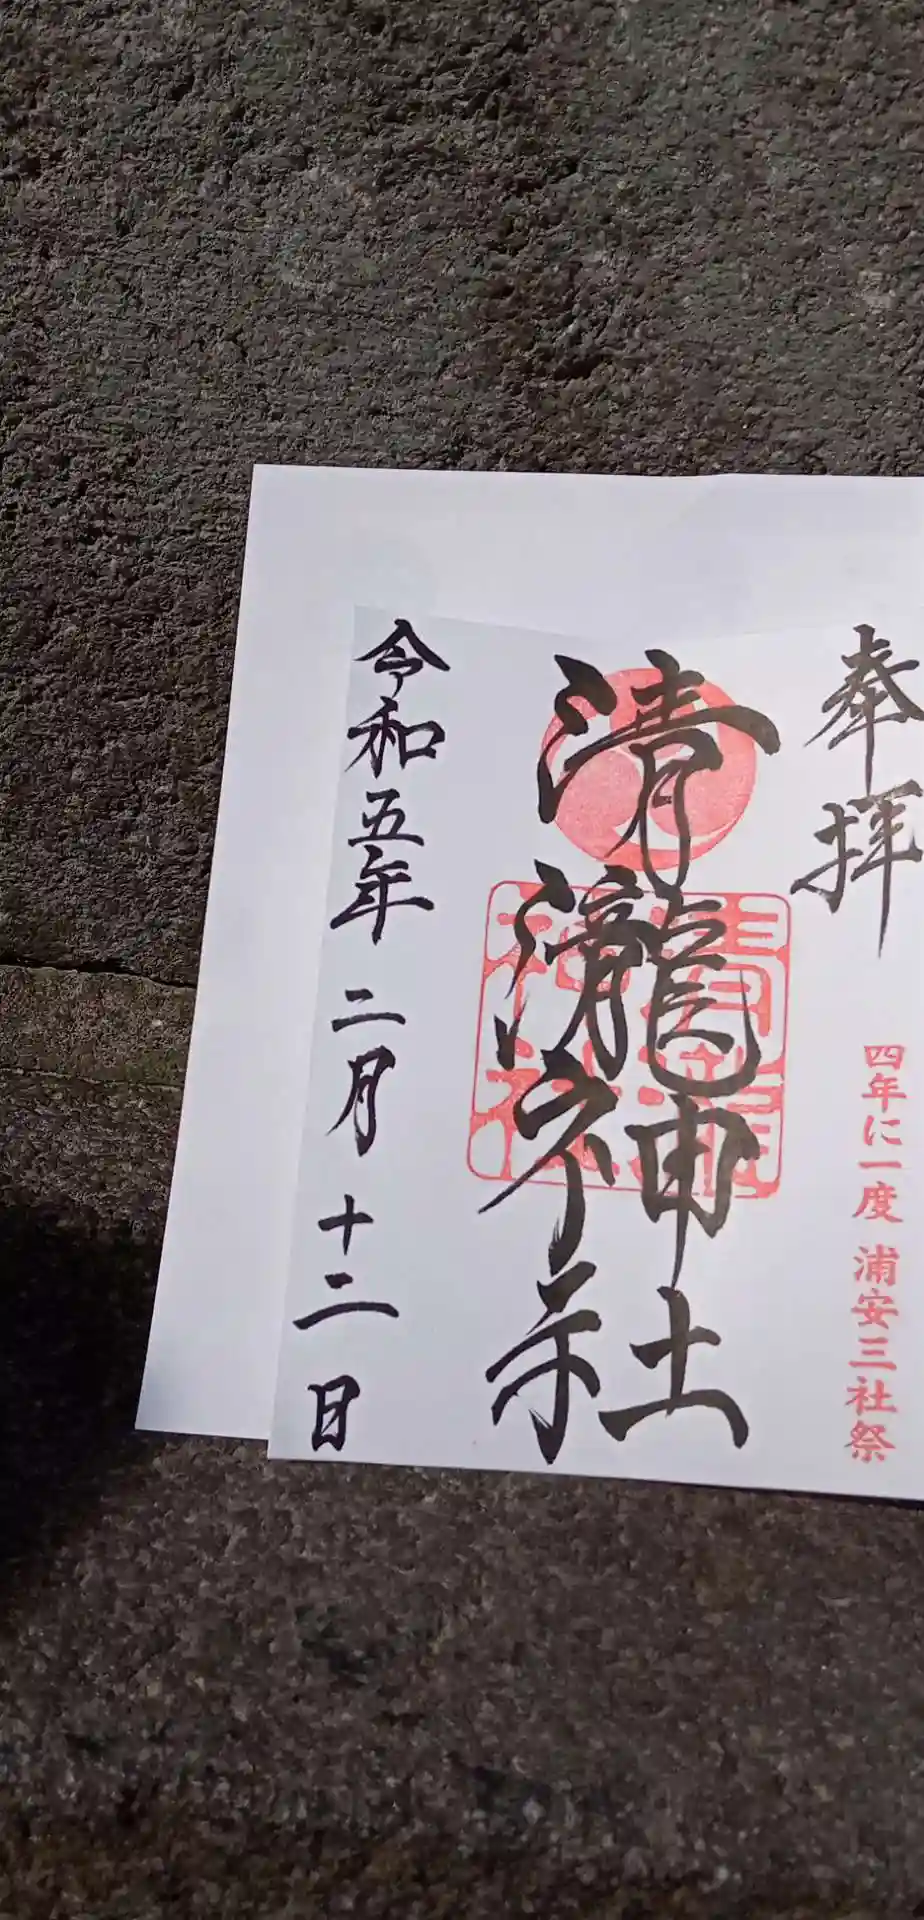 奉拝
四年に一度 浦安三社祭
清瀧神社
清瀧神社
令和五年二月十二日